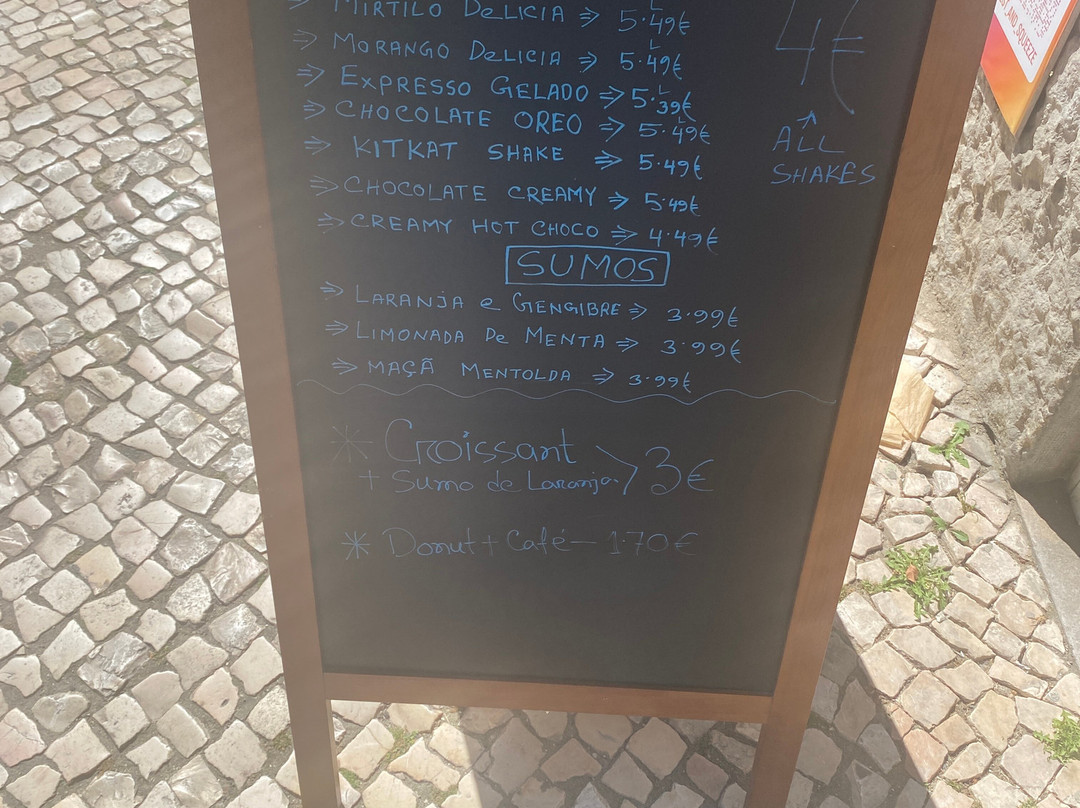 ⇒ MIRTILO DELICIA ⇒ 5.49€
⇒ MORANGO DELICIA ⇒ 5.49€
⇒ EXPRESSO GELADO ⇒ 5.39€
⇒ CHOCOLATE OREO ⇒ 5.49€
⇒ KITKAT SHAKE ⇒ 5.49€
⇒ CHOCOLATE CREAMY ⇒ 5.49€
⇒ CREAMY HOT CHOCO ⇒ 4.49€
4€
↑
ALL
SHAKES
SUMOS
⇒ LARANJA e GENGIBRE ⇒ 3.99€
⇒ LIMONADA De MENTA ⇒ 3.99€
⇒ MAÇÃ MENTOLDA ⇒ 3.99€
* Croissant
+ Sumo de Laranja > 3€
* Donut + Café - 1.70€
AND SQUEEZE